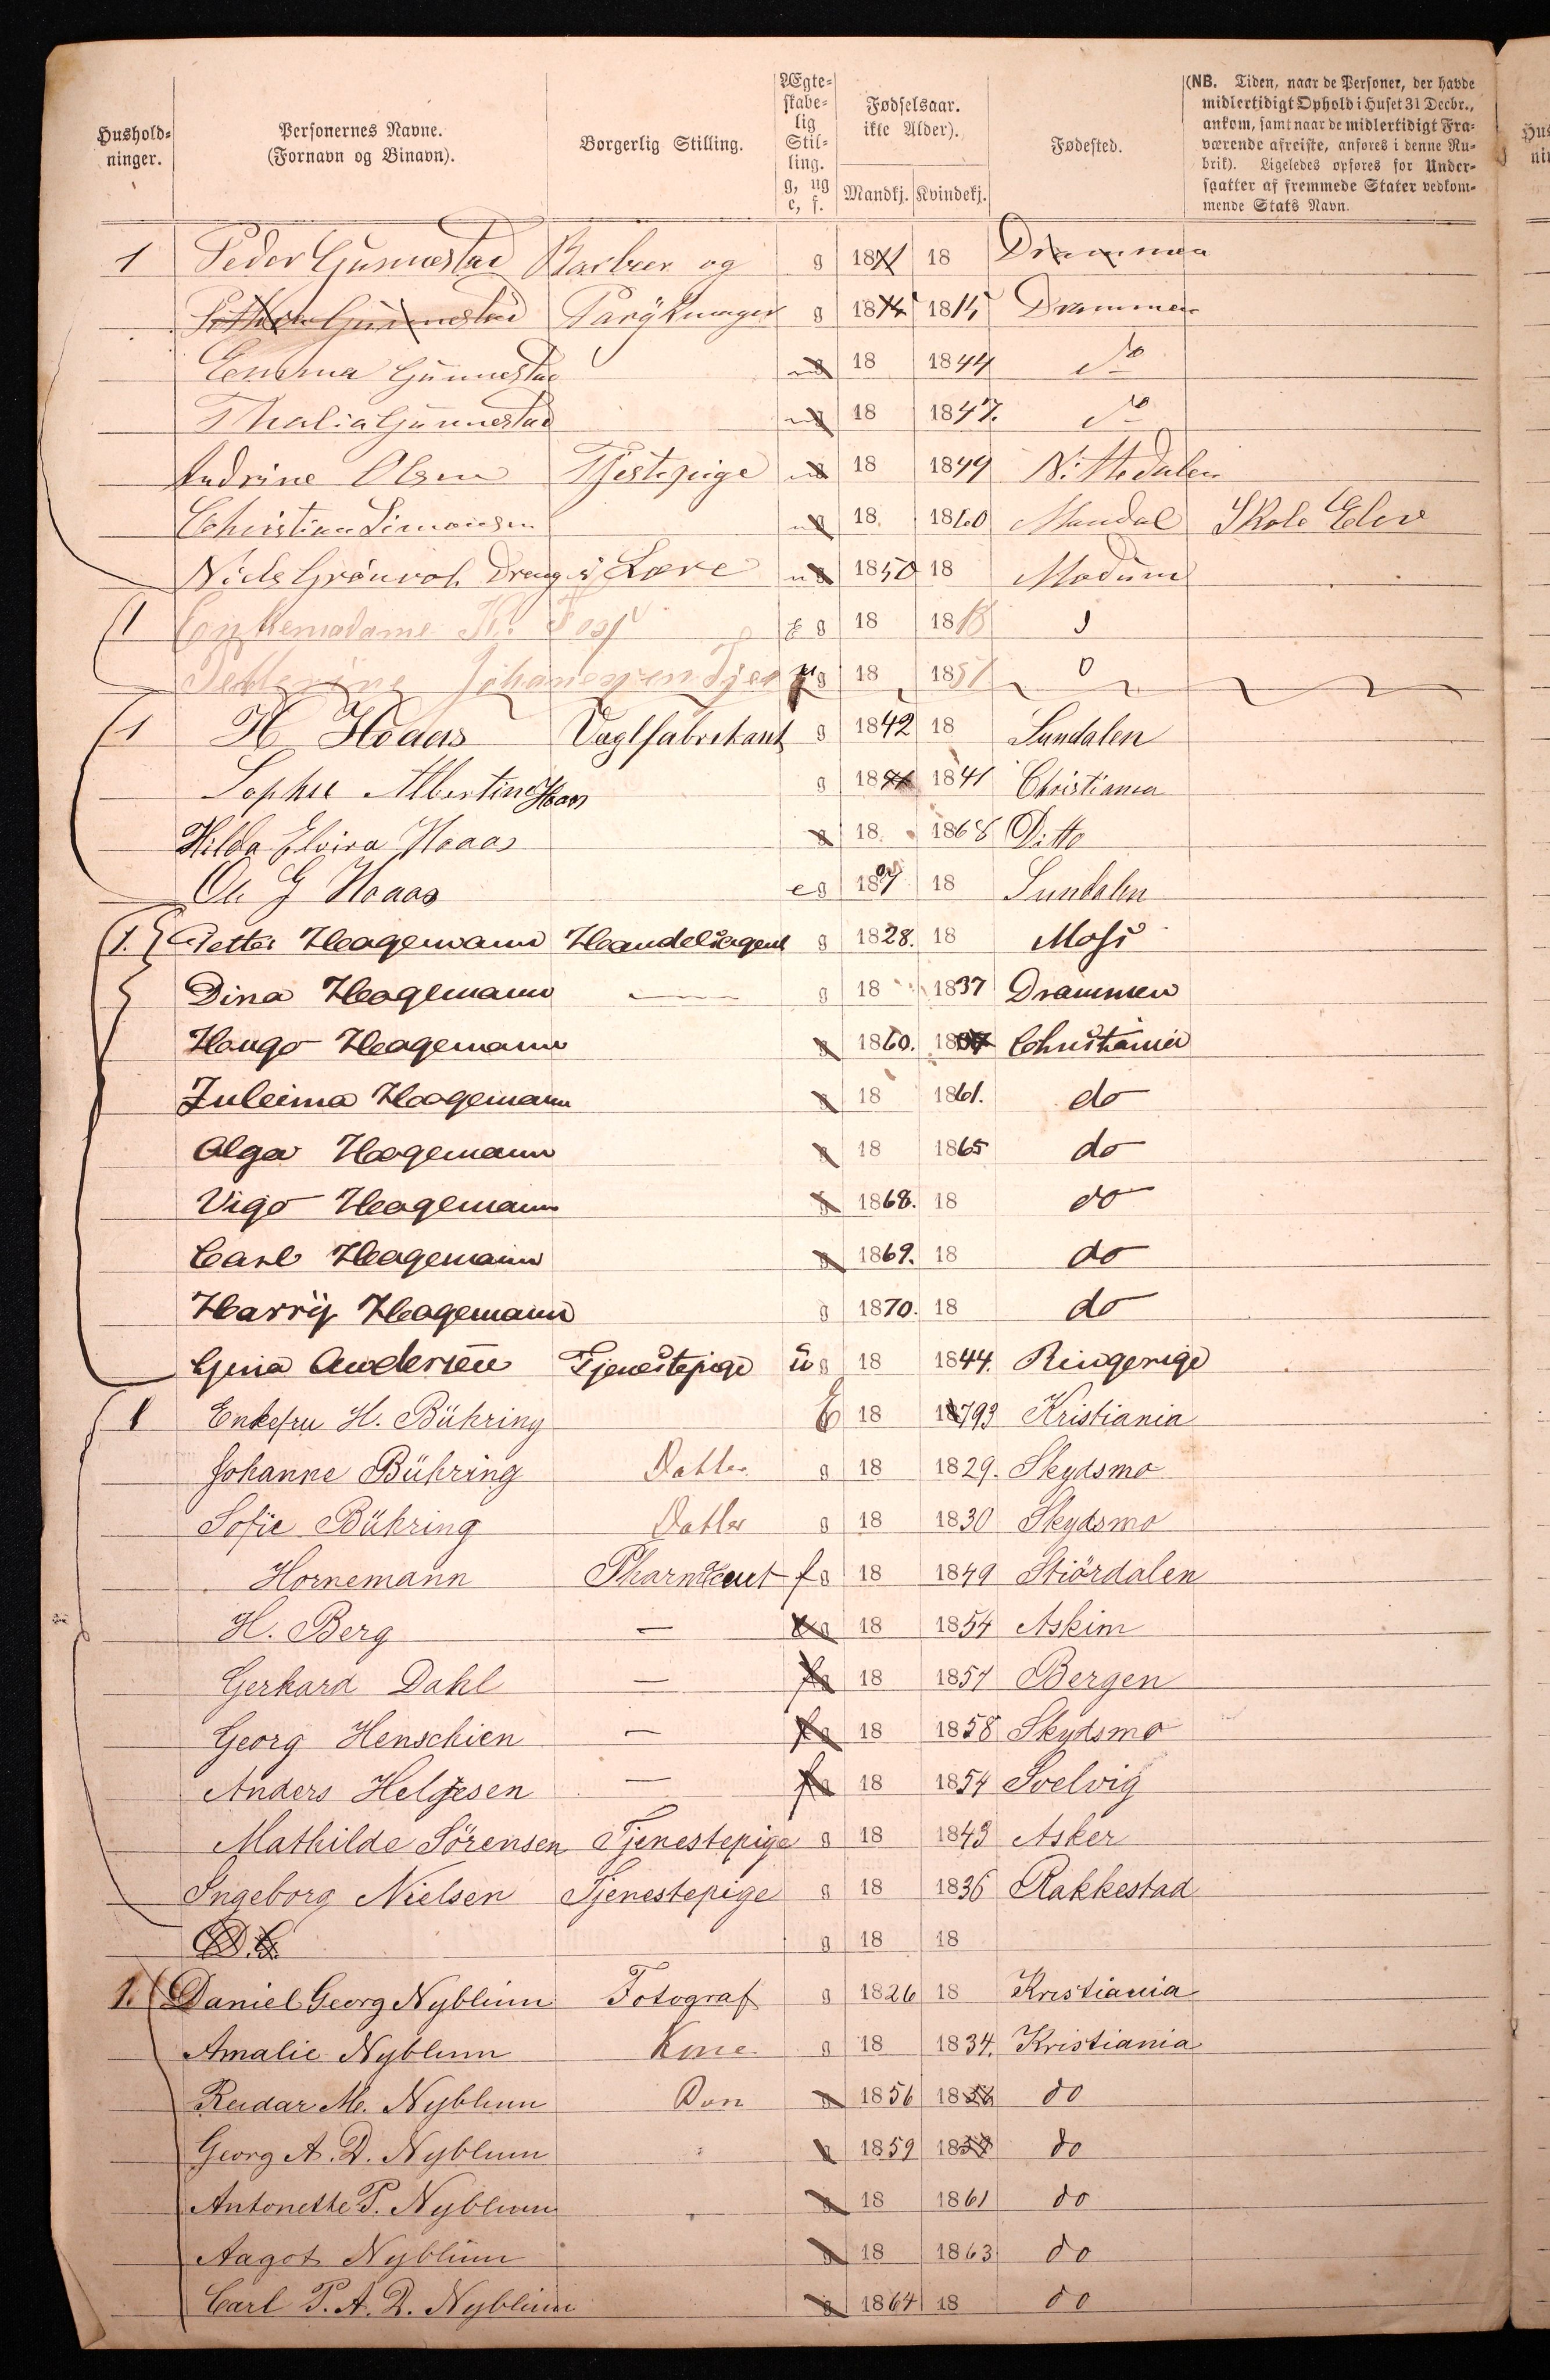 Hushold-
ninger.
Personernes Navne.
(Fornavn og Binavn).
Borgerlig Stilling.
Ægte-
skabe-
lig
Stil-
ling.
g, ug
e, f.
Fødselsaar.
ikke Alder).
Mandkj. Kvindekj.
Fødested.
(NB. Tiden, naar de Personer, der havde
midlertidigt Ophold i Huset 31 Decbr.,
ankom, samt naar de midlertidigt Fra-
værende afreiste, anføres i denne Ru-
brik). Ligeledes opføres for Under-
saatter af fremmede Stater vedkom-
mende Stats Navn.
1 Peder Gunnestad Barbeer og g 18 18 Drammen
Gunnestad Parykmager g 18 1815 Drammen
Emma Gunnestad ug 18 1844 do
Thalia Gunnestad ug 18 1847. do
Andrine Olsen Tjestepige ug 18 1849 Nittedalen
Christian Simonsen ug 18 1860 Mandal Skole Elev
Niels Grönvol Dreng i Lære ug 1850 18 Modum
1 Enkemadame g 18 18
Johannesen g 18 1851
1 H Hoaas Vægtfabrikant g 1842 18 Sundalen
Sophie Albertine Hoaas g 18 1841 Christiania
Hilda Elvira Hoaas g 18 1868 Ditto
Ole G Hoaas eg 18 18 Sundalen
1. Petter Hagemann Handelsagent g 1828. 18 Moss
Dina Hagemann — g 18 1837 Drammen
Hougo Hagemann g 1860. 18 Christiania
Zuleima Hagemann g 18 1861. do
Olga Hagemann g 18 1865 do
Vigo Hagemann g 1868. 18 do
Carl Hagemann g 1869. 18 do
Harry Hagemann g 1870. 18 do
Gina Andersen Tjenestepige ug 18 1844. Ringerige
1 Enkefru H. Bühring E 18 1793 Kristiania
Johanne Bühring Datter g 18 1829. Skydsmo
Sofie Bühring Datter g 18 1830 Skydsmo
Hornemann Pharmaceut fg 18 1849 Stiördalen
H. Berg — g 18 1854 Askim
Gerhard Dahl — fg 18 1854 Bergen
Georg Henschien — fg 18 1858 Skydsmo
Anders Helgesen — fg 18 1854 Svelvig
Mathilde Sörensen Tjenestepige g 18 1843 Asker
Ingeborg Nielsen Tjenestepige g 18 1836 Rakkestad
D. G. g 18 18
1. Daniel Georg Nyblin Fotograf g 1826 18 Kristiania
Amalie Nyblin Kone g 18 1834. Kristiania
Reidar M. Nyblin g 1856 1856 do
Georg A. D. Nyblin g 1859 1859 do
Antonette P. Nyblin g 18 1861 do
Aagot Nyblin g 18 1863 do
Carl P. A. D. Nyblin g 1864 18 do